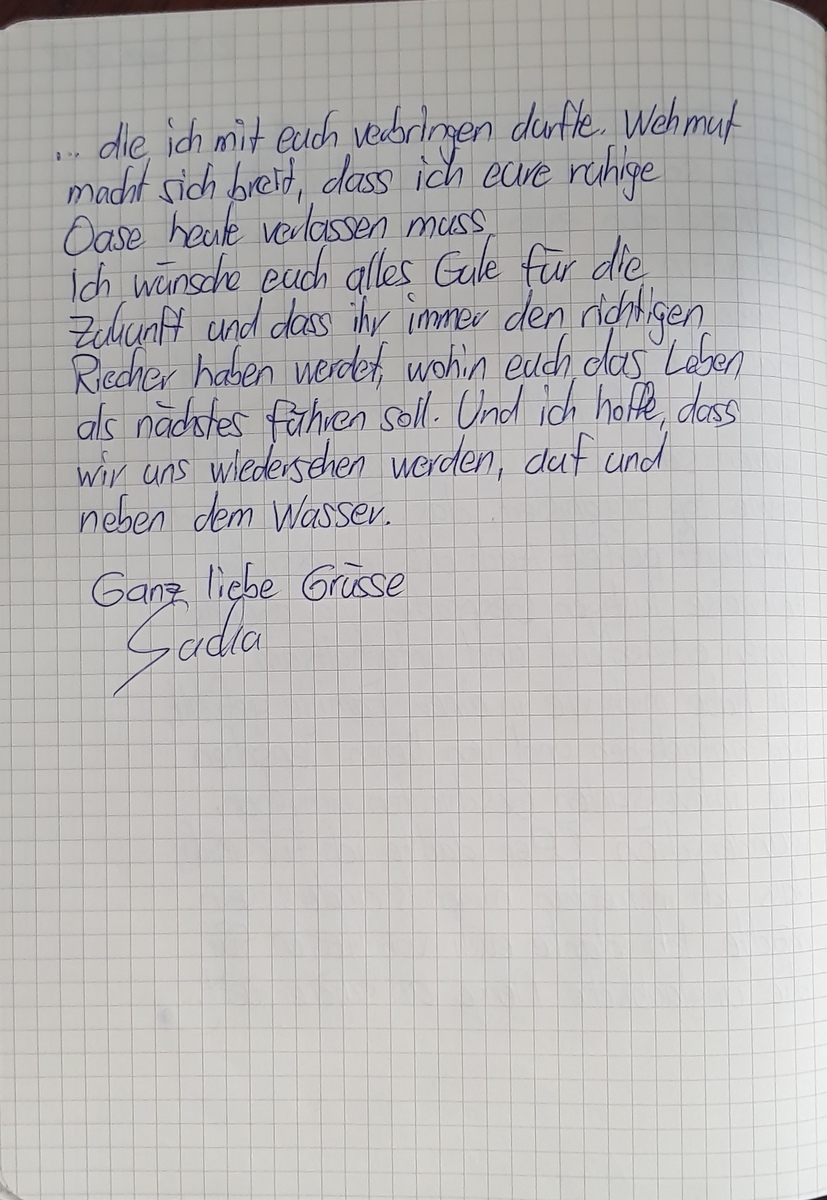 ... die ich mit euch verbringen durfte. Wehmut
macht sich breit, dass ich eure ruhige
Oase heute verlassen muss.
Ich wünsche euch alles Gute für die
Zukunft und dass ihr immer den richtigen
Riecher haben werdet, wohin euch das Leben
als nächstes führen soll. Und ich hoffe, dass
wir uns wiedersehen werden, auf und
neben dem Wasser.
Ganz liebe Grüsse
Sadia